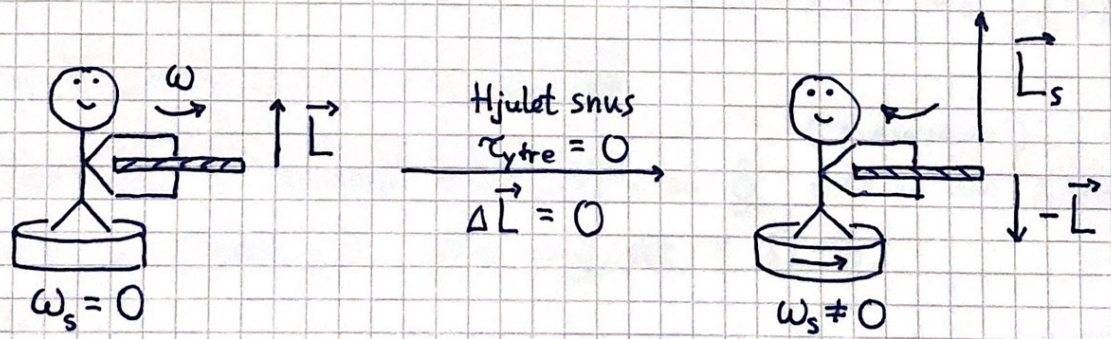 ω
L⃗
ω_s = 0
Hjulet snus
τ_ytre = 0
ΔL⃗ = 0
L⃗_s
-L⃗
ω_s ≠ 0